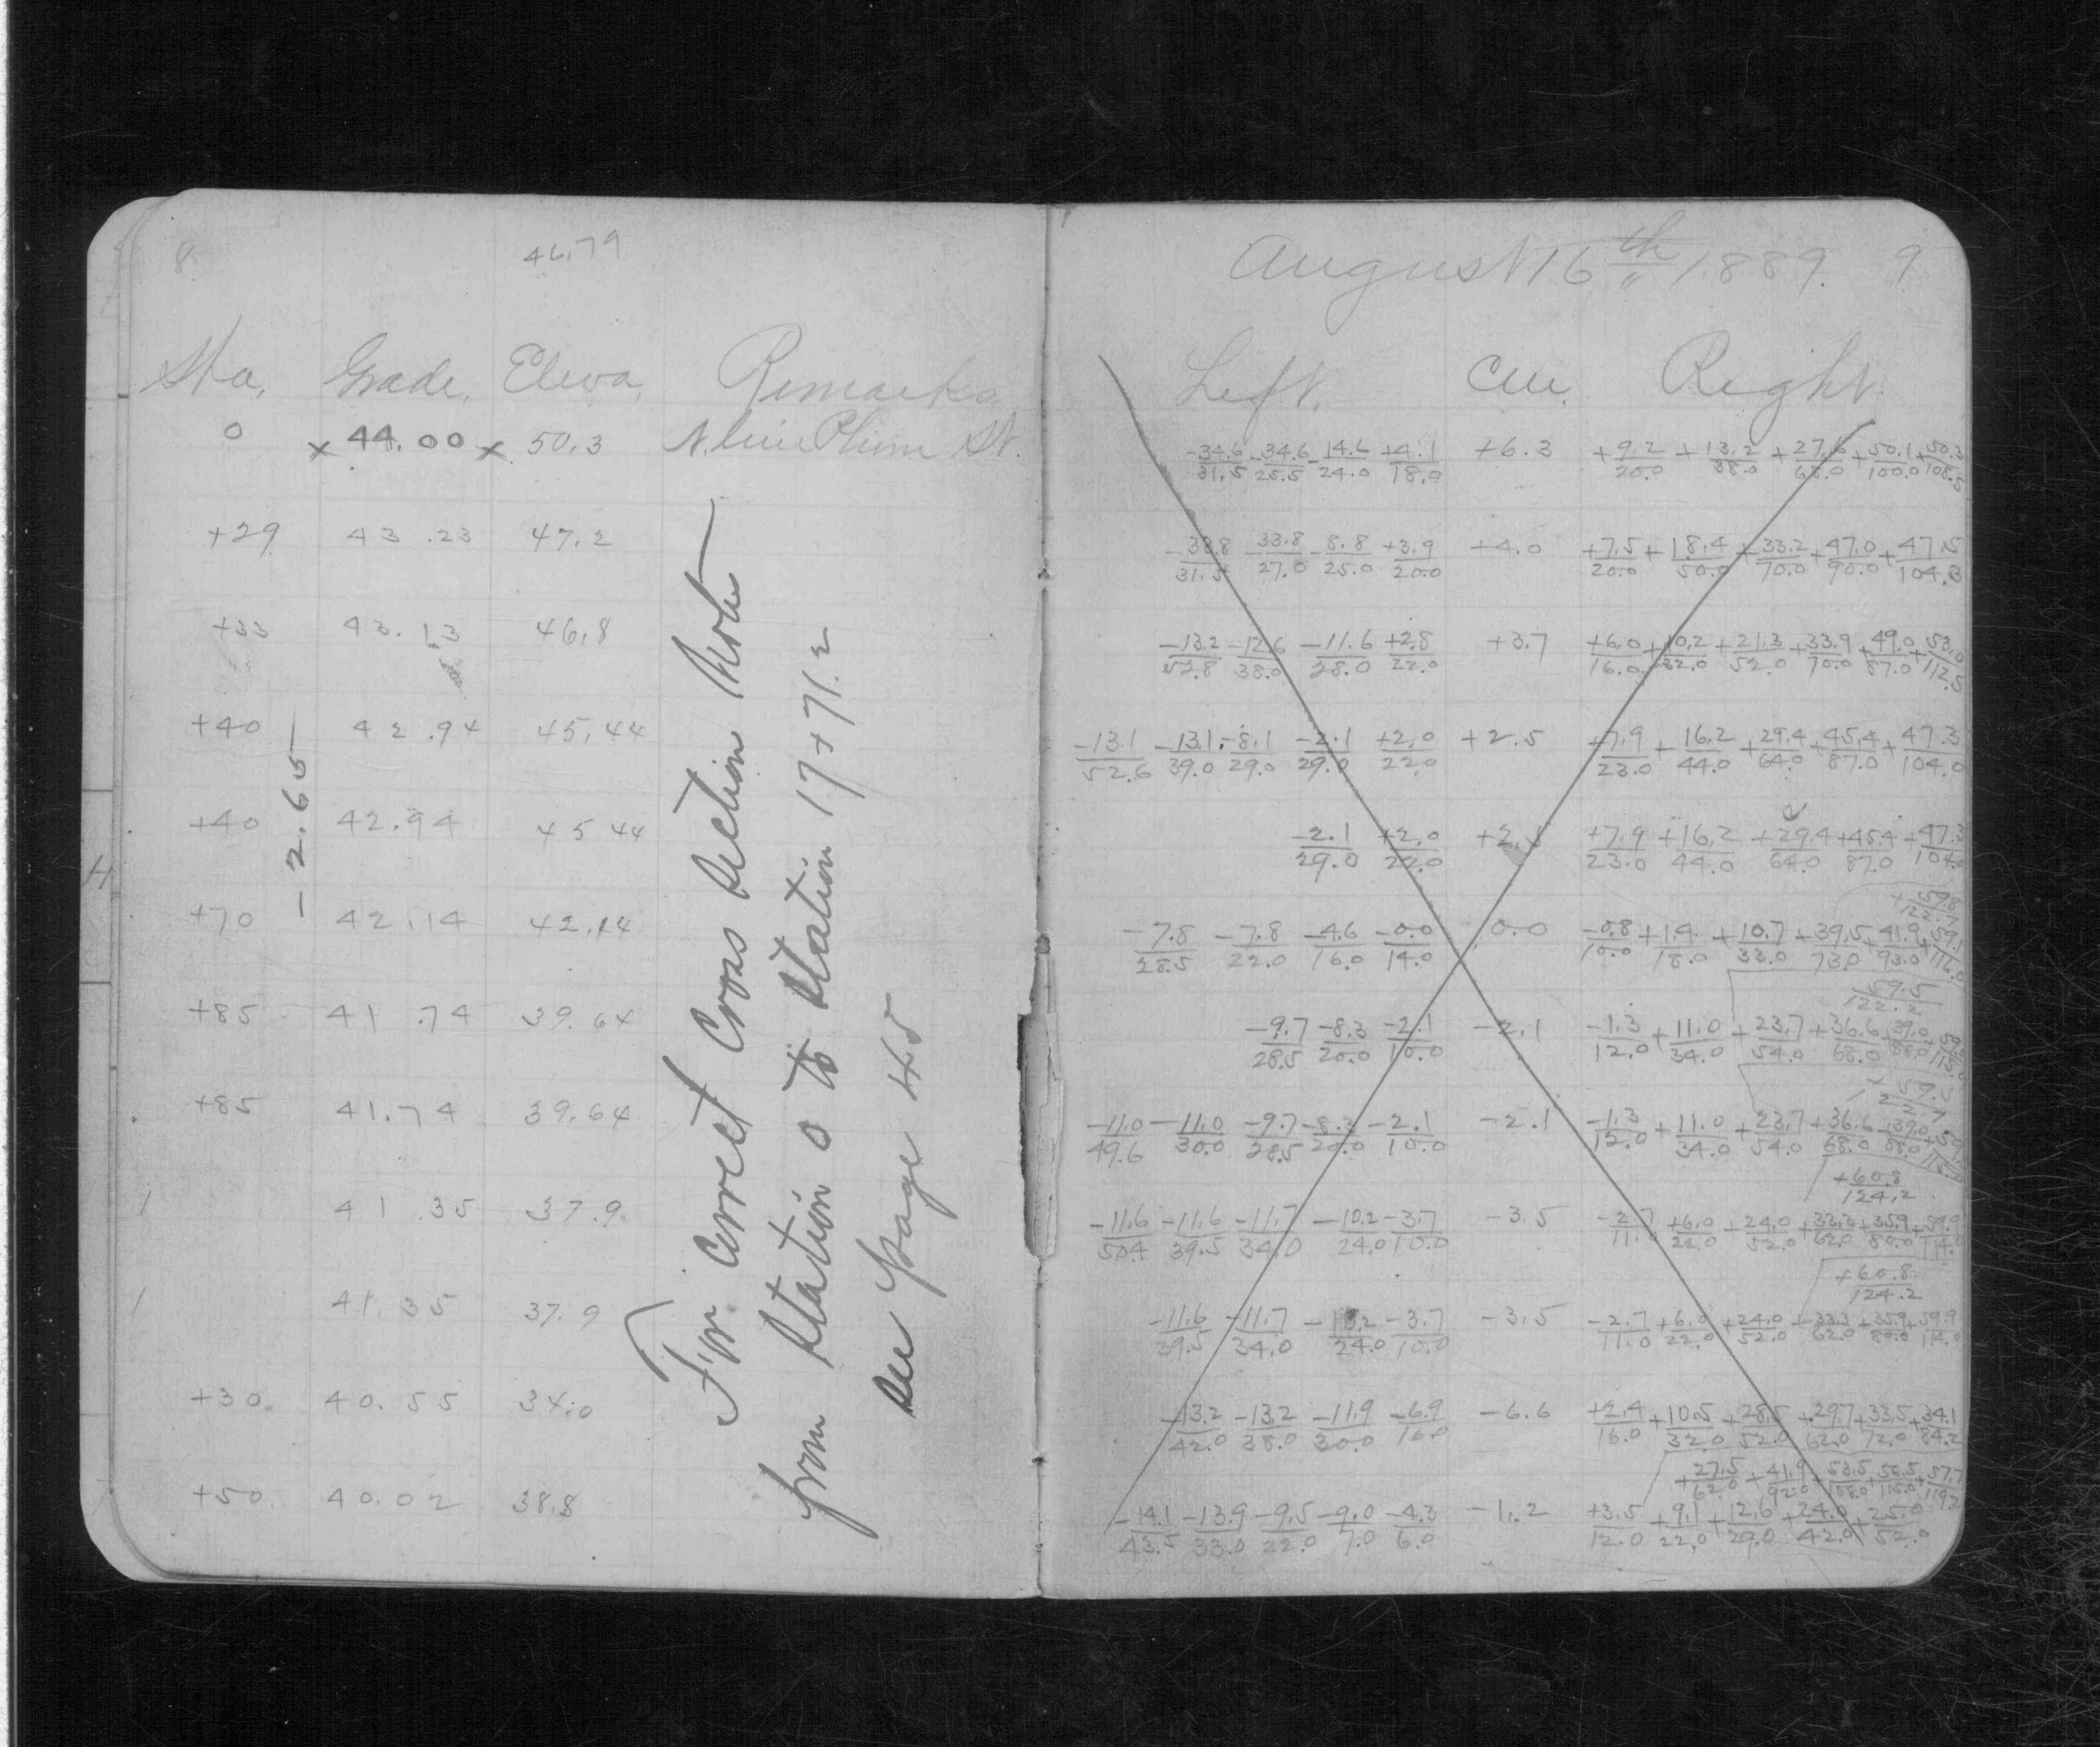 8 46.79
Sta. Grade. Eleva. Remarks
0 x 44.00 x 50.3 N. line Plum St.
+29 43.23 47.2
+33 43.13 46.8
+40 42.94 45.44
-2.65
+40 42.94 45.44
+70 42.14 42.14
+85 41.74 39.64
+85 41.74 39.64
1 41.35 37.9
1 41.35 37.9
+30. 40.55 34.0
+50. 40.02 38.8
For Correct Cross Section Notes
from Station 0 to Station 17+71.2
see page 45
August 16th 1889. 9
Left. Cen. Right.
-34.6/31.5 -34.6/25.5 -14.6/24.0 +4.1/18.0 +6.3 +9.2/20.0 +13.2/38.0 +27.6/68.0 +50.1/100.0 +50.3/108.5
-33.8/31.5 -33.8/27.0 -8.8/25.0 +3.9/20.0 +4.0 +7.5/20.0 +18.4/50.0 +33.2/70.0 +47.0/90.0 +47.5/104.3
-13.2/52.8 -12.6/38.0 -11.6/28.0 +2.8/22.0 +3.7 +6.0/16.0 +10.2/32.0 +21.3/52.0 +33.9/70.0 +49.0/87.0 +53.0/112.5
-13.1/52.6 -13.1/39.0 -8.1/29.0 -2.1/29.0 +2.0/22.0 +2.5 +7.9/23.0 +16.2/44.0 +29.4/64.0 +45.4/87.0 +47.3/104.0
-2.1/29.0 +2.0/22.0 +2.5 +7.9/23.0 +16.2/44.0 +29.4/64.0 +45.4/87.0 +47.3/104.0
-7.8/28.5 -7.8/22.0 -4.6/16.0 -0.0/14.0 0.0 -0.8/10.0 +1.4/18.0 +10.7/33.0 +39.5/73.0 +41.9/93.0 +59.1/116.0
59.5/122.2
-9.7/28.5 -8.3/20.0 -2.1/10.0 -2.1 -1.3/12.0 +11.0/34.0 +23.7/54.0 +36.6/68.0 +39.0/88.0
-11.0/49.6 -11.0/30.0 -9.7/28.5 -8.3/20.0 -2.1/10.0 -2.1 -1.3/12.0 +11.0/34.0 +23.7/54.0 +36.6/68.0 +39.0/88.0
+60.8/124.2
-11.6/50.4 -11.6/39.5 -11.7/34.0 -10.2/24.0 -3.7/10.0 -3.5 -2.7/11.0 +6.0/22.0 +24.0/52.0 +33.3/62.0 +35.9/80.0 +59.9/114.0
+60.8/124.2
-11.6/39.5 -11.7/34.0 -10.2/24.0 -3.7/10.0 -3.5 -2.7/11.0 +6.0/22.0 +24.0/52.0 +33.3/62.0 +35.9/80.0 +59.9/114.0
-13.2/42.0 -13.2/38.0 -11.9/30.0 -6.9/16.0 -6.6 +2.4/16.0 +10.5/32.0 +28.5/52.0 +29.7/62.0 +33.5/72.0 +34.1/84.2
+27.5/62.0 +41.9/92.0 +53.5/108.0 +56.5/115.0 +57.7/119.2
-14.1/43.5 -13.9/33.0 -9.5/22.0 -9.0/7.0 -4.3/6.0 -1.2 +3.5/12.0 +9.1/22.0 +12.6/29.0 +24.0/42.0 +25.0/52.0